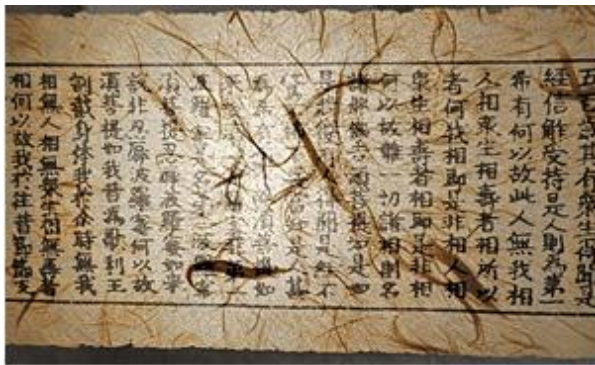 五百歲其有衆生得聞是
經信解受持是人則為第一
希有何以故此人無我相
人相衆生相壽者相所以
者何我相即是非相人相
衆生相壽者相即是非相
何以故離一切諸相則名
諸佛佛告須菩提如是如
是若復有人得聞是經不
當知是甚
須菩提如
非第一
波羅蜜
須菩提忍辱波羅蜜如來
說非忍辱波羅蜜何以故
須菩提如我昔為歌利王
割截身體我於爾時無我
相無人相無衆生相無壽者
相何以故我於往昔節節支